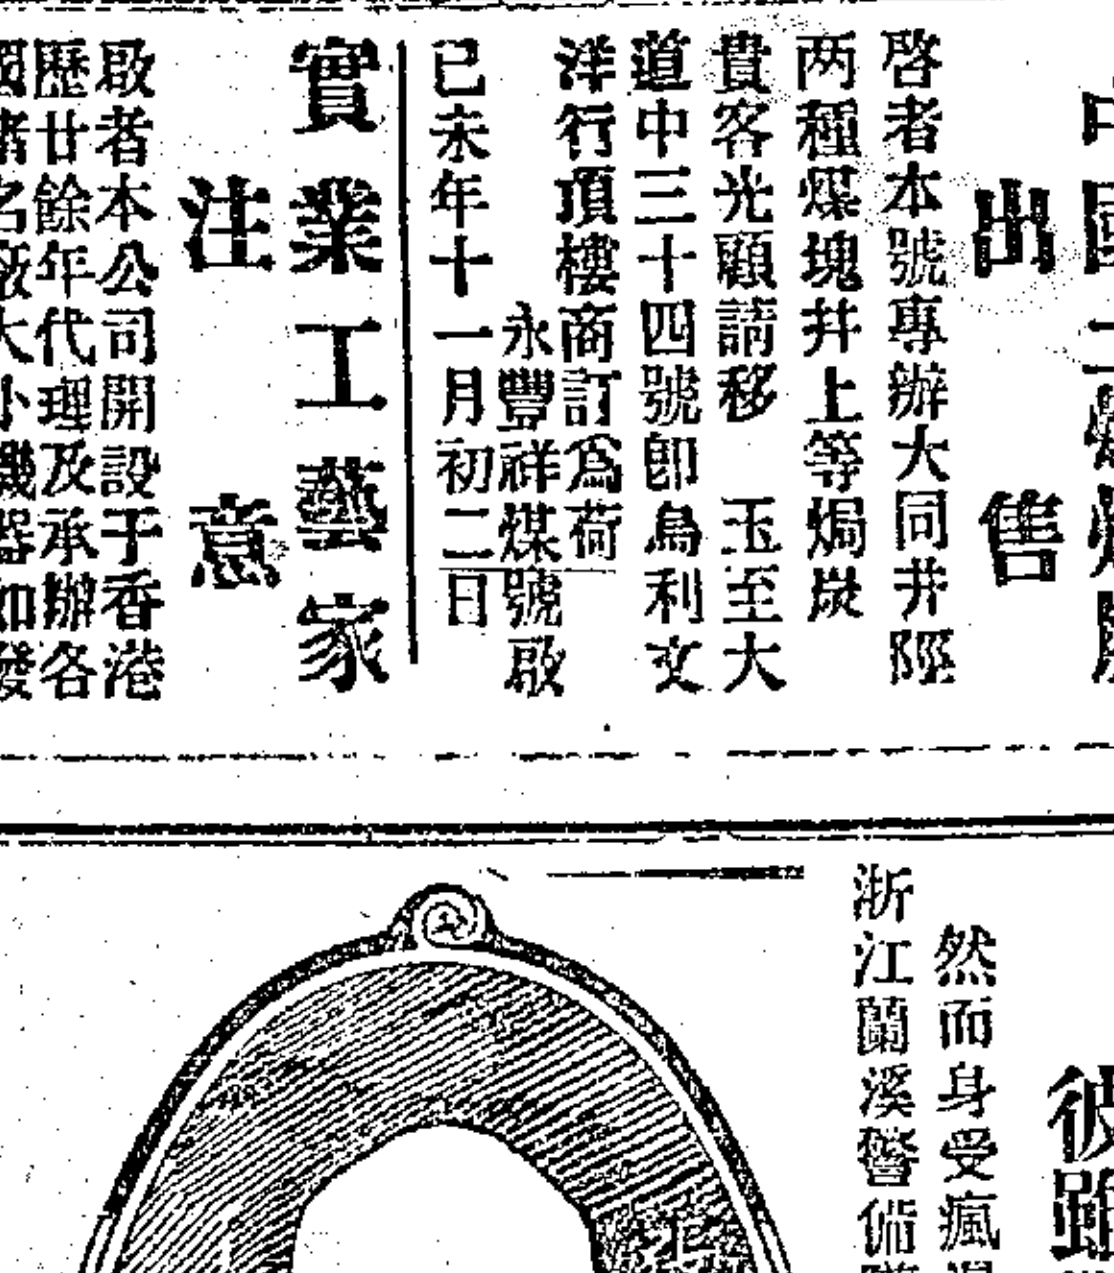 出售
啓者本號專辦大同井陘
两種煤塊井上等焗炭
貴客光顧請移 玉至大
道中三十四號卽烏利文
洋行頂樓商訂爲荷
永豐祥煤號啟
已未年十一月初二日
實業工藝家
注意
啟者本公司開設于香港
歷廿餘年代理及承辦各
國諸名廠大小機器如發
彼雖
然而身受瘋濕
浙江蘭溪警備隊